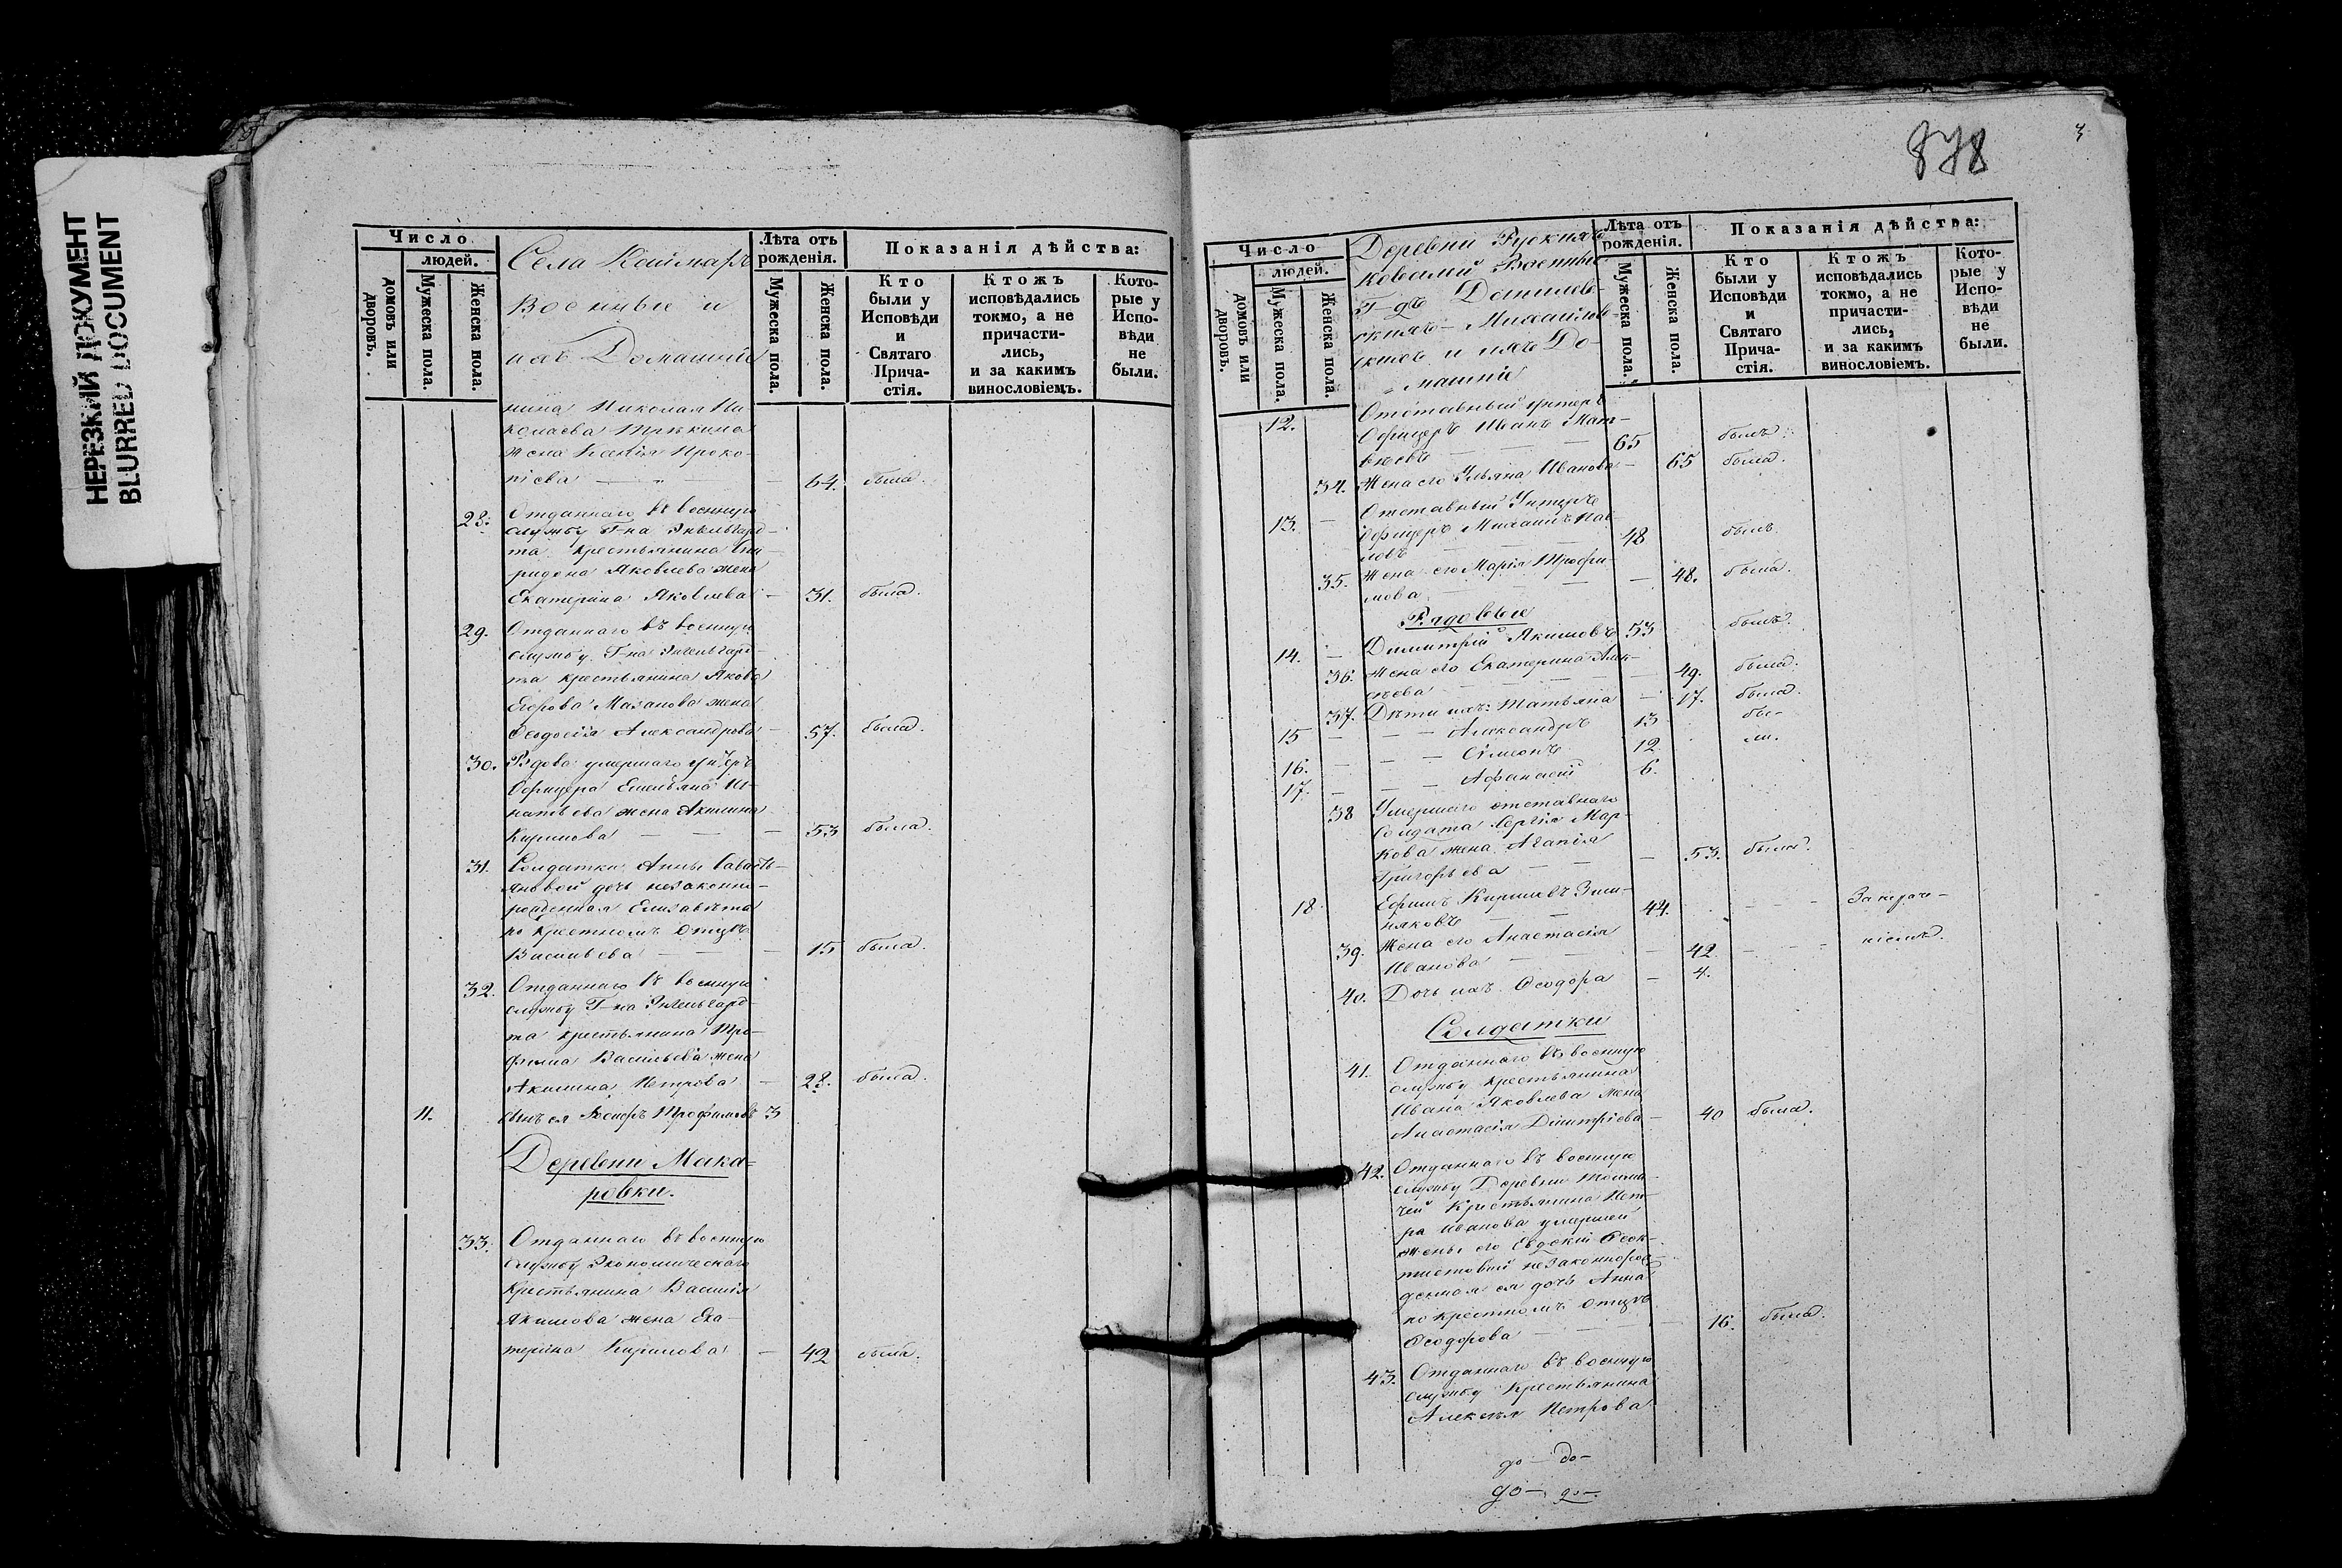 НЕРЕЗКИЙ ДОКУМЕНТ
BLURRED DOCUMENT
Число
людей.
домовъ или дворовъ.
Мужеска пола.
Женска пола.
Села Каймаръ
Военные и
ихъ Домашніе
Лѣта отъ рожденія.
Мужеска пола.
Женска пола.
Показанія дѣйства:
Кто были у Исповѣди и Святаго Причастія.
Ктожъ исповѣдались токмо, а не причастились, и за какимъ винословіемъ.
Которые у Исповѣди не были.
нина Николая Ни-
колаева
жена Проко-
піева — 64. была.
28. Отданнаго въ военную
службу Г-на Энгельгард-
та крестьянина Спи-
ридона Яковлева жена
Екатерина Яковлева — 31. была.
29. Отданнаго въ военную
службу Г-на Энгельгард-
та крестьянина Якова
Егорова Мазанова жена
Ѳеодосія Александрова — 57. была.
30. Вдова умершаго унтеръ
Офицера Емельяна Иг-
натьева жена Акилина
Кирилова — — — 53 была.
31. Солдатки Анны Савасть-
яновой дочь незаконно-
рожденная Елизавета
по крестномъ отцѣ
Васильева — — — 15 была.
32. Отданнаго въ военную
службу Г-на Энгельгард-
та крестьянина Тро-
фима Васильева жена
Акилина Петрова — 28. была.
11. Сынъ ея Трофимовъ 3
Деревни Мака-
ровки.
33. Отданнаго въ военную
службу Экономическаго
Крестьянина Василія
Якимова жена Ека-
терина Кирилова — 42 была.
878
Число
людей.
домовъ или дворовъ.
Мужеска пола.
Женска пола.
Деревни
Военные
Г-дъ
и ихъ До-
машніе
Лѣта отъ рожденія.
Мужеска пола.
Женска пола.
Показанія дѣйства:
Кто были у Исповѣди и Святаго Причастія.
Ктожъ исповѣдались токмо, а не причастились, и за какимъ винословіемъ.
Которые у Исповѣди не были.
12. Отставный унтеръ
Офицеръ Иванъ Мат-
вѣевъ — — 65 былъ.
34. Жена его Ульяна Иванова — 65 была.
13. — Отставный Унтеръ
Офицеръ Михаилъ Пав-
ловъ — — — 48 былъ
35. Жена его Марія Трофи-
мова — — — 48. была.
Рядовые
14. — Димитрій Якимовъ 53 былъ.
36. Жена его Екатерина Алек-
сѣева — — — 49. была.
37. Дѣти ихъ: Татьяна — 17. была.
15 — — — Александръ 13 бы-
16. — — — Сѵмеонъ 12 ли.
17. — — — Афанасій 6.
38 Умершаго отставнаго
Солдата Сергія Мар-
кова жена Агапія
Григорьева — — 53. была.
18. Ефимъ Кириловъ Зим-
няковъ — — 44. — — —
39. Жена его Анастасія
Иванова — — 42 — — —
40. Дочь ихъ Ѳеодора — 4.
Солдатки
41. Отданнаго въ военную
службу крестьянина
Ивана Яковлева жена
Анастасія Димитріева — 40 была.
42. Отданнаго въ военную
службу Деревни
Крестьянина Пет-
ра Иванова умершей
жены его Евдокіи Ѳеок-
тистовой незаконнорож-
денная ея дочь Анна
по крестномъ отцѣ
Ѳеодорова — — — 16. была.
43. Отданнаго въ военную
службу Крестьянина
Алексѣя Петрова
до — до —
до — до —